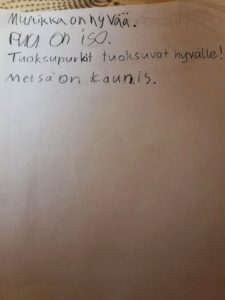 Mustikka on hyvää.
Puu on iso.
Tuoksupurkit tuoksuvat hyvälle!
Metsä on kaunis.